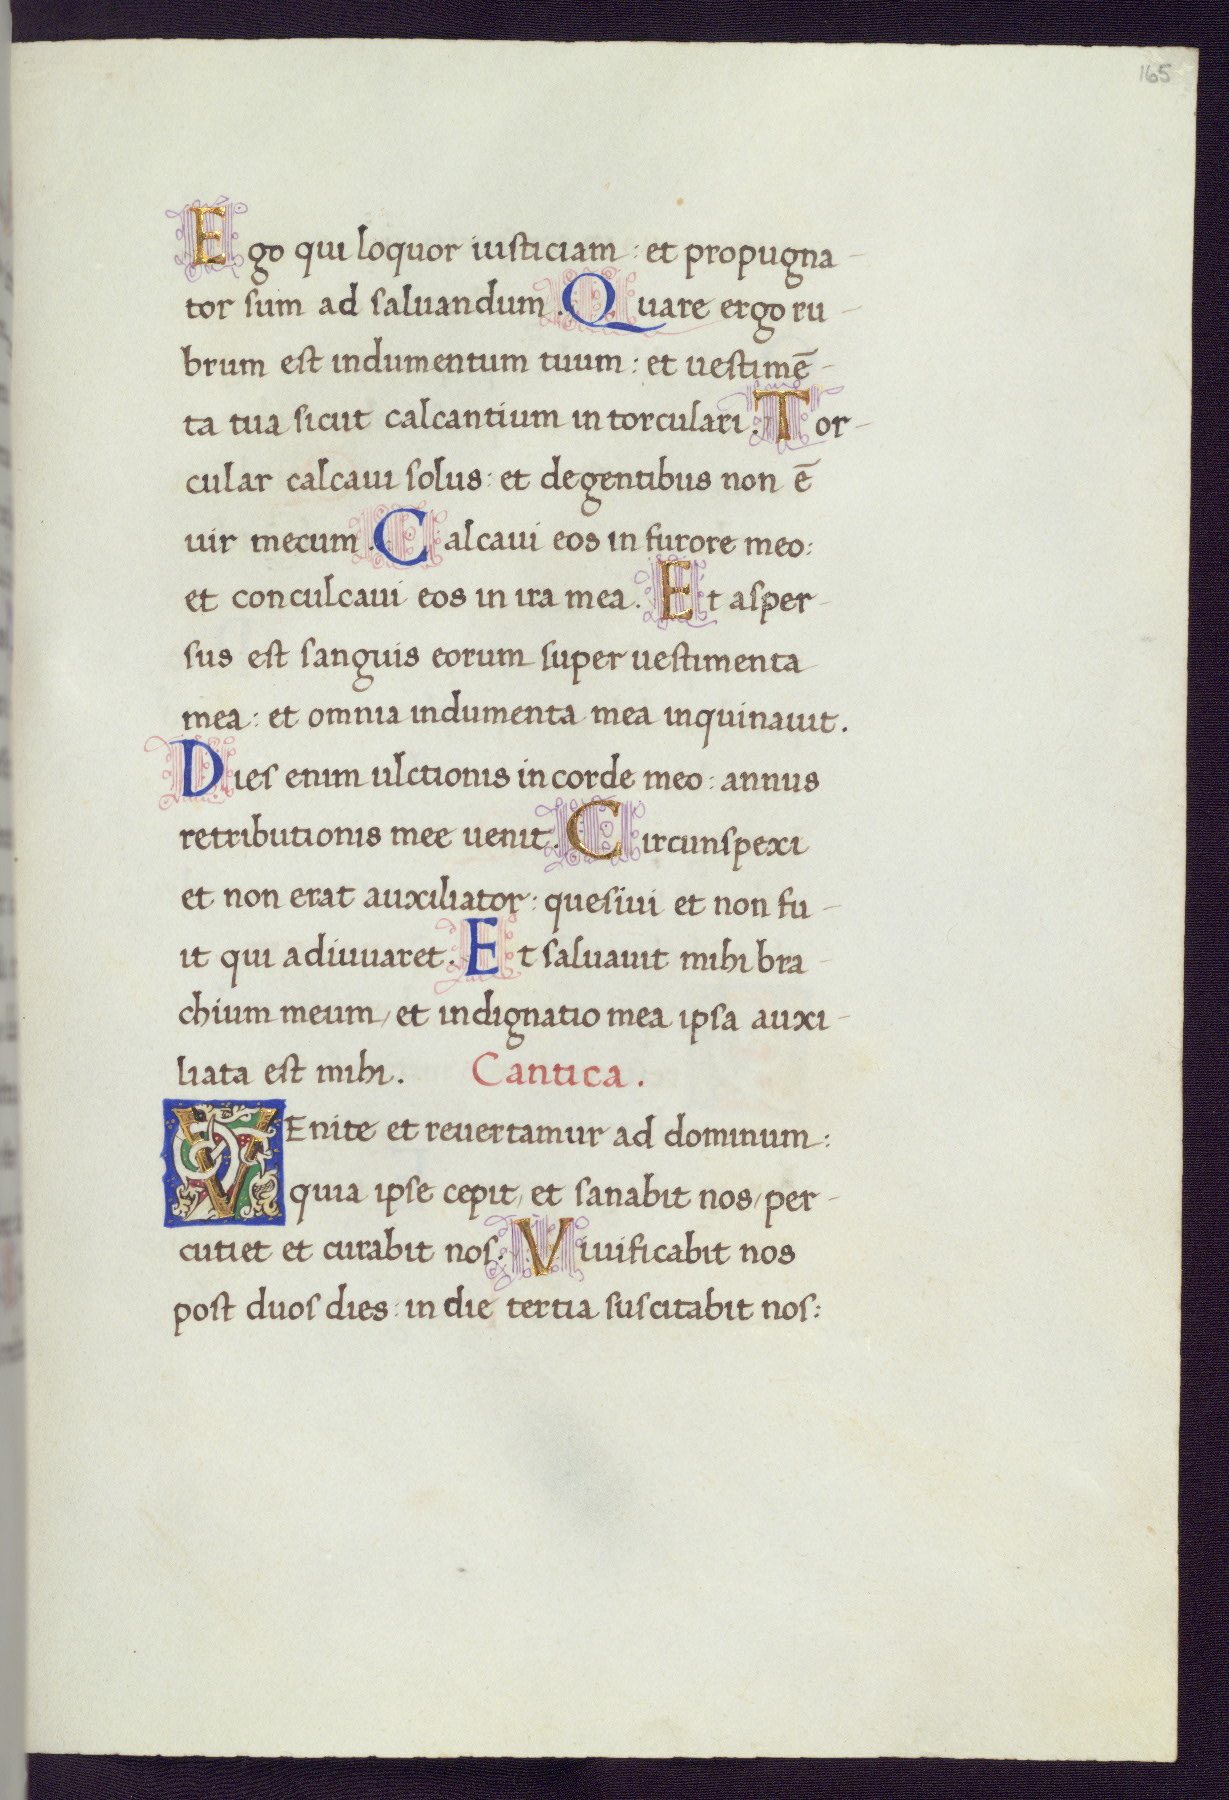 165
Ego qui loquor iusticiam : et propugna-
tor sum ad saluandum . Quare ergo ru-
brum est indumentum tuum : et uestimē-
ta tua sicut calcantium in torculari . Tor-
cular calcaui solus : et de gentibus non ē
uir mecum . Calcaui eos in furore meo :
et conculcaui eos in ira mea . Et asper-
sus est sanguis eorum super uestimenta
mea : et omnia indumenta mea inquinauit .
Dies enim ulctionis in corde meo : annus
retributionis mee uenit . Circunspexi
et non erat auxiliator : quesiui et non fu-
it qui adiuuaret . Et saluauit mihi bra-
chium meum / et indignatio mea ipsa auxi-
liata est mihi . Cantica .
VEnite et reuertamur ad dominum :
quia ipse cepit / et sanabit nos / per-
cutiet et curabit nos . Viuificabit nos
post duos dies : in die tertia suscitabit nos :